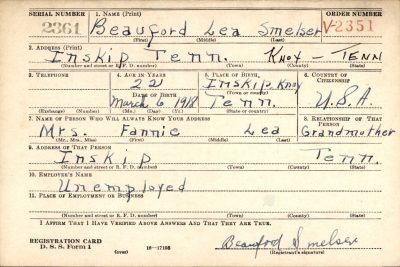 SERIAL NUMBER 1. NAME (Print) ORDER NUMBER
2361 Beauford Lea Smelser V-2351
(First) (Middle) (Last)
2. ADDRESS (Print)
Inskip Tenn. Knox - Tenn
(Number and street or R. F. D. number) (Town) (County) (State)
3. TELEPHONE 4. AGE IN YEARS 5. PLACE OF BIRTH 6. COUNTRY OF CITIZENSHIP
22 Inskip, Knox
DATE OF BIRTH (Town or county)
March 6 1918 Tenn. U.S.A.
(Exchange) (Number) (Mo.) (Day) (Yr.) (State or country)
7. NAME OF PERSON WHO WILL ALWAYS KNOW YOUR ADDRESS 8. RELATIONSHIP OF THAT PERSON
Mrs. Fannie Lea Grandmother
(Mr., Mrs., Miss) (First) (Middle) (Last)
9. ADDRESS OF THAT PERSON
Inskip Tenn.
(Number and street or R. F. D. number) (Town) (County) (State)
10. EMPLOYER'S NAME
Unemployed
11. PLACE OF EMPLOYMENT OR BUSINESS
(Number and street or R. F. D. number) (Town) (County) (State)
I AFFIRM THAT I HAVE VERIFIED ABOVE ANSWERS AND THAT THEY ARE TRUE.
REGISTRATION CARD
D. S. S. Form 1 (over) 16-17105
Beauford Smelser
(Registrant's signature)